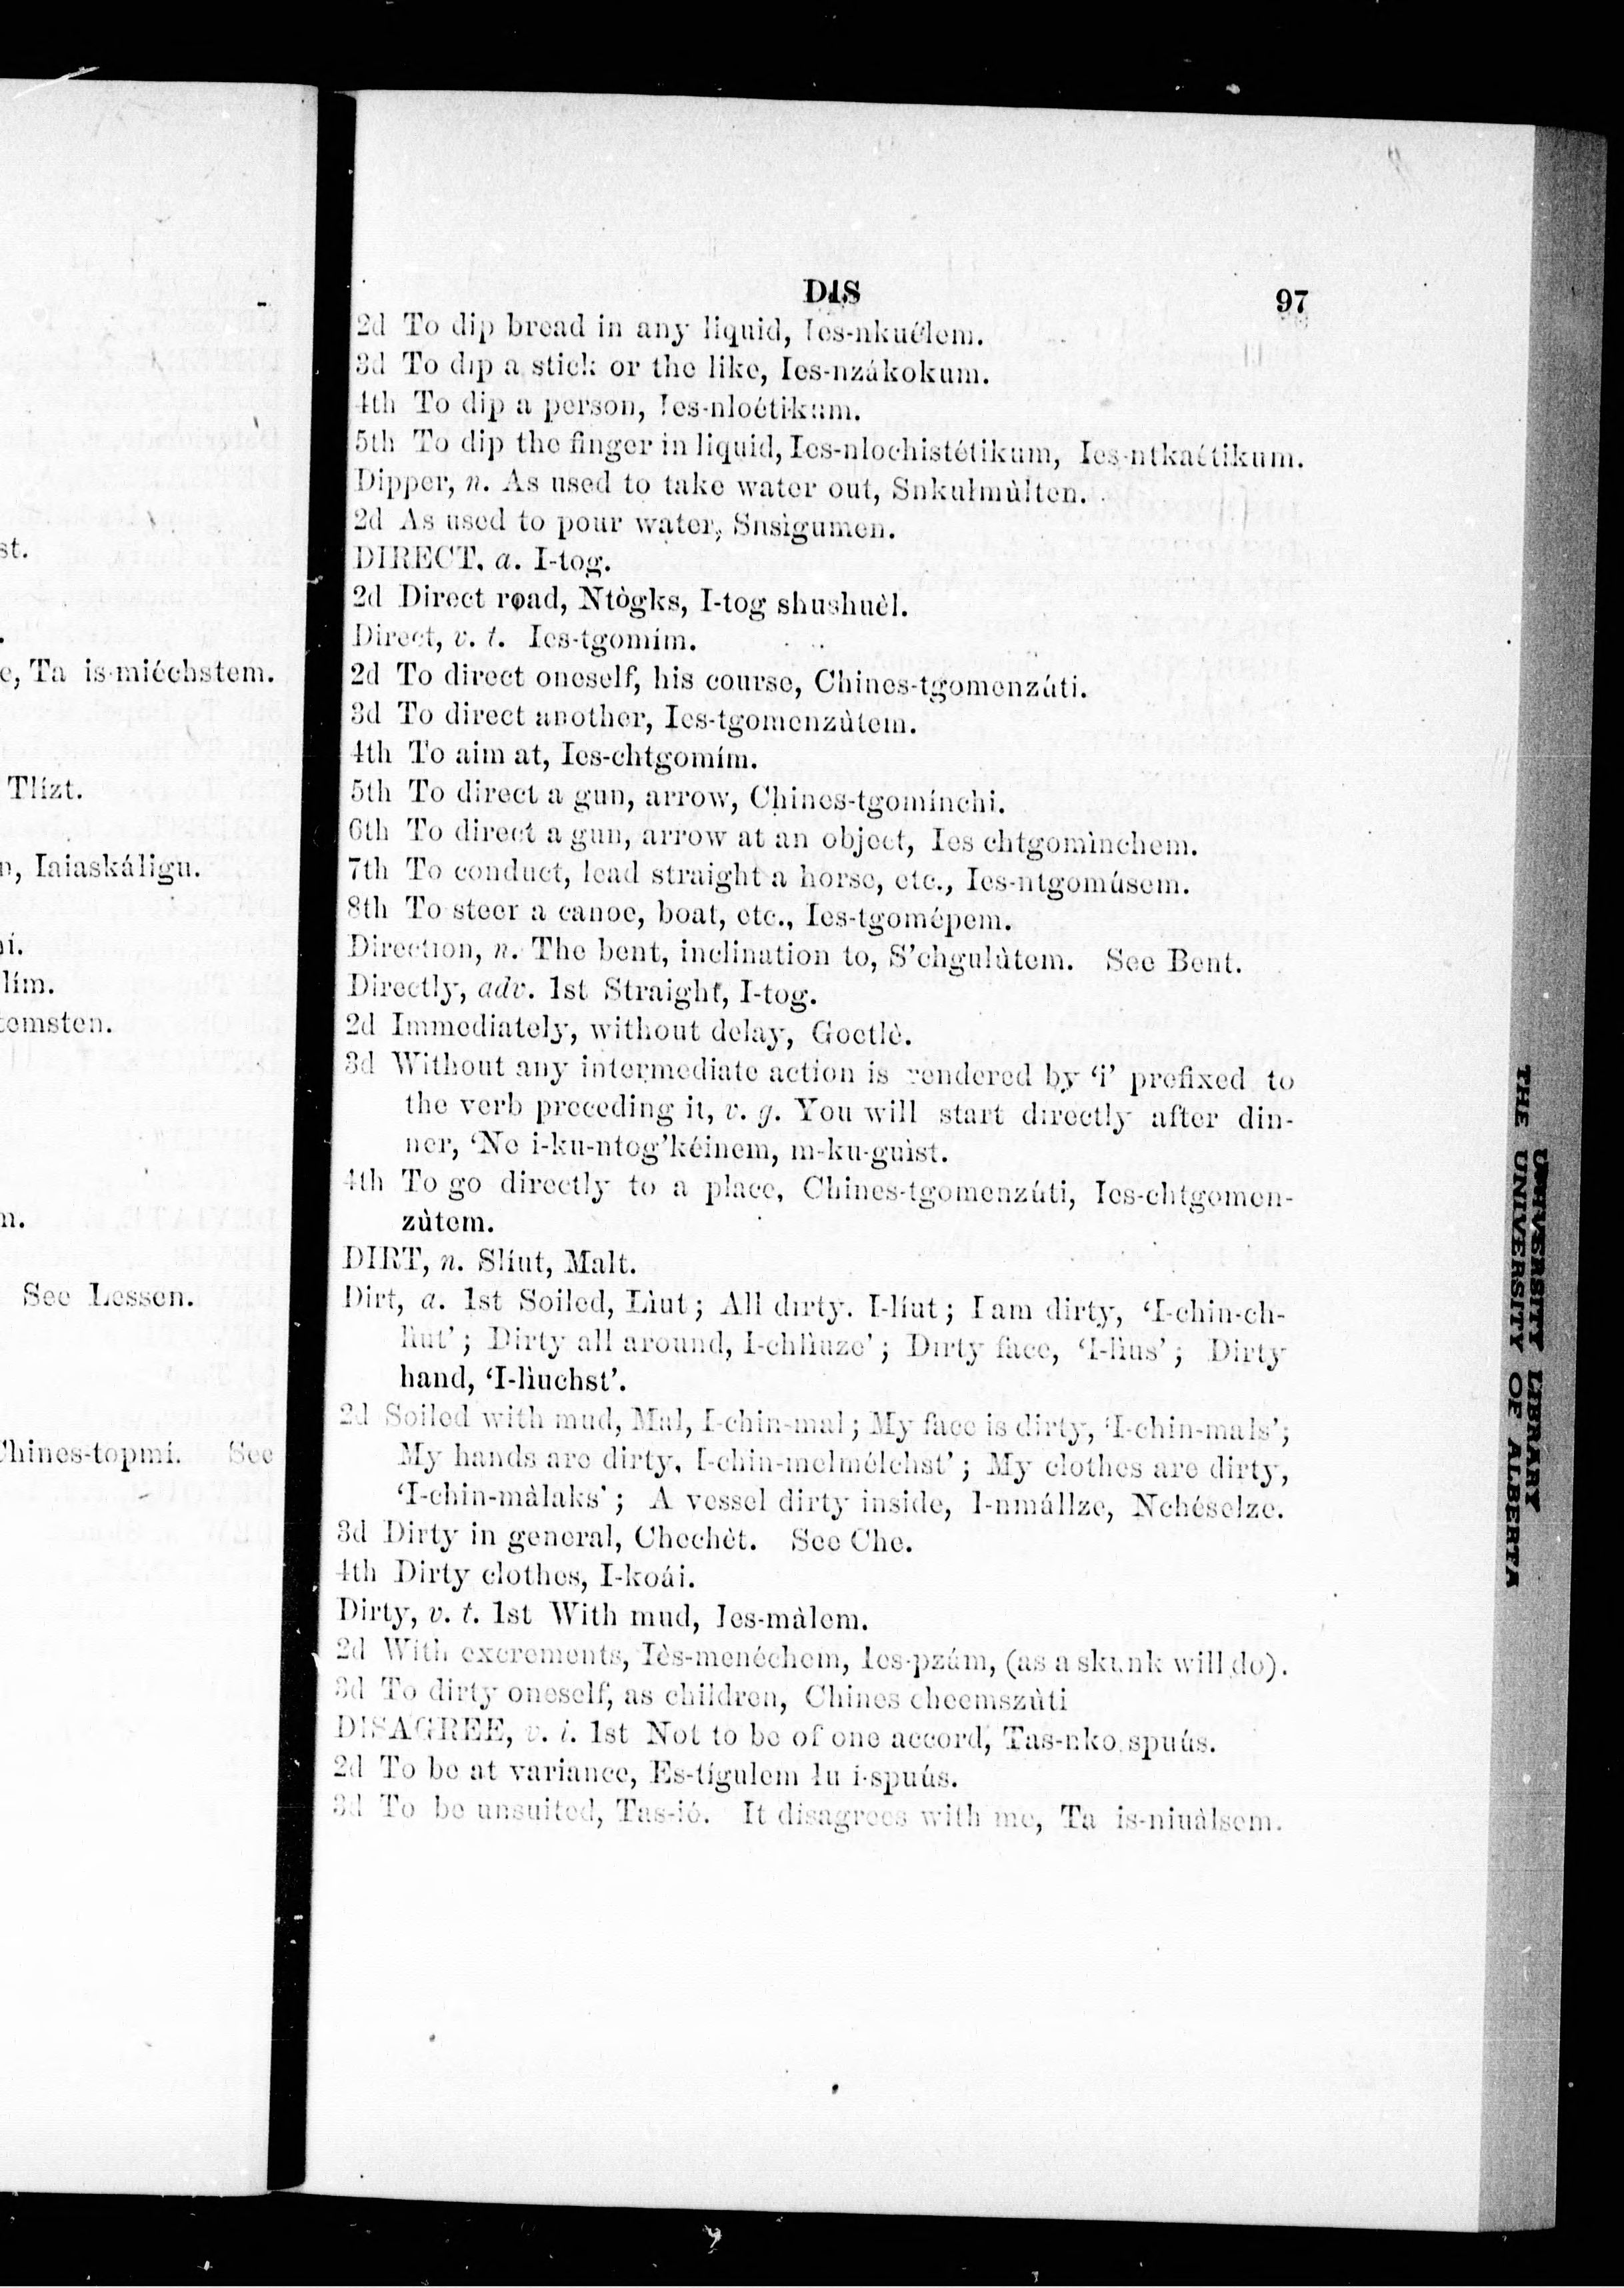 st.
e, Ta is-miéchstem.
Tlízt.
n, Iaiaskáligu.
lím.
temsten.
See Lessen.
Chines-topmi. See
DIS 97
2d To dip bread in any liquid, Ies-nkuélem.
3d To dip a stick or the like, Ies-nzákokum.
4th To dip a person, Ies-nloétikum.
5th To dip the finger in liquid, Ies-nlochistétikum, Ies-ntkaétikum.
Dipper, n. As used to take water out, Snkułmùlten.
2d As used to pour water, Snsìgumen.
DIRECT, a. I-tog.
2d Direct road, Ntògks, I-tog shushuèl.
Direct, v. t. Ies-tgomím.
2d To direct oneself, his course, Chines-tgomenzúti.
3d To direct another, Ies-tgomenzùtem.
4th To aim at, Ies-chtgomím.
5th To direct a gun, arrow, Chines-tgomínchi.
6th To direct a gun, arrow at an object, Ies chtgomìnchem.
7th To conduct, lead straight a horse, etc., Ies-ntgomúsem.
8th To steer a canoe, boat, etc., Ies-tgomépem.
Direction, n. The bent, inclination to, S’chgulùtem. See Bent.
Directly, adv. 1st Straight, I-tog.
2d Immediately, without delay, Goetlè.
3d Without any intermediate action is rendered by ‘i’ prefixed to
the verb preceding it, v. g. You will start directly after din-
ner, ‘Ne i-ku-ntog’kéinem, m-ku-guìst.
4th To go directly to a place, Chines-tgomenzúti, Ies-chtgomen-
zùtem.
DIRT, n. Slíut, Malt.
Dirt, a. 1st Soiled, Lìut; All dirty. I-líut; I am dirty, ‘I-chin-ch-
lìut’; Dirty all around, I-chlìuze’; Dirty face, ‘I-lìus’; Dirty
hand, ‘I-lìuchst’.
2d Soiled with mud, Mal, I-chin-mal; My face is dirty, ‘I-chin-mals’;
My hands are dirty, I-chin-melmélchst’; My clothes are dirty,
‘I-chin-màlaks’; A vessel dirty inside, I-nmállze, Nchéselze.
3d Dirty in general, Chechèt. See Che.
4th Dirty clothes, I-koái.
Dirty, v. t. 1st With mud, Ies-màlem.
2d With excrements, Iès-menéchem, Ies-pzám, (as a skunk will do).
3d To dirty oneself, as children, Chines cheemszùti
DISAGREE, v. i. 1st Not to be of one accord, Tas-nko spuús.
2d To be at variance, Es-tígulem łu i-spuús.
3d To be unsuited, Tas-ió. It disagrees with me, Ta is-niuàlsem.
THE UNIVERSITY OF ALBERTA
UNIVERSITY LIBRARY